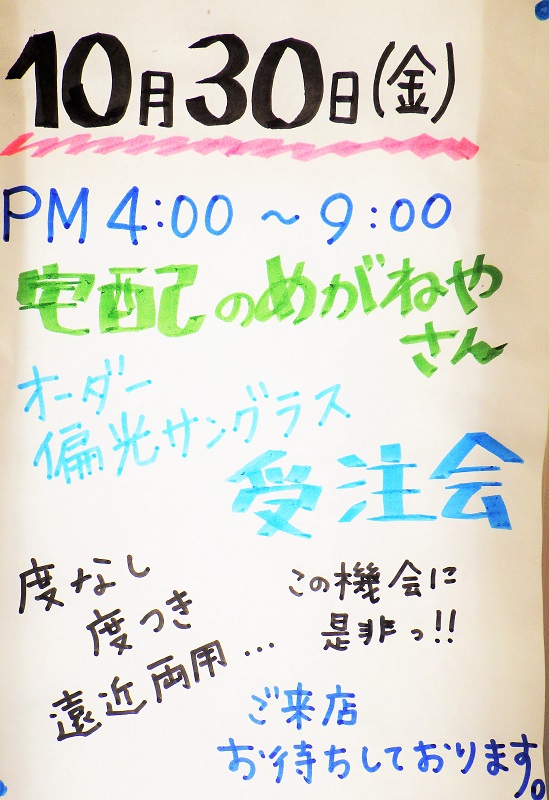 10月30日(金)
PM 4:00 〜 9:00
宅配のめがねや
さん
オーダー
偏光サングラス
受注会
度なし
度つき
遠近両用…
この機会に
是非っ!!
ご来店
お待ちしております。